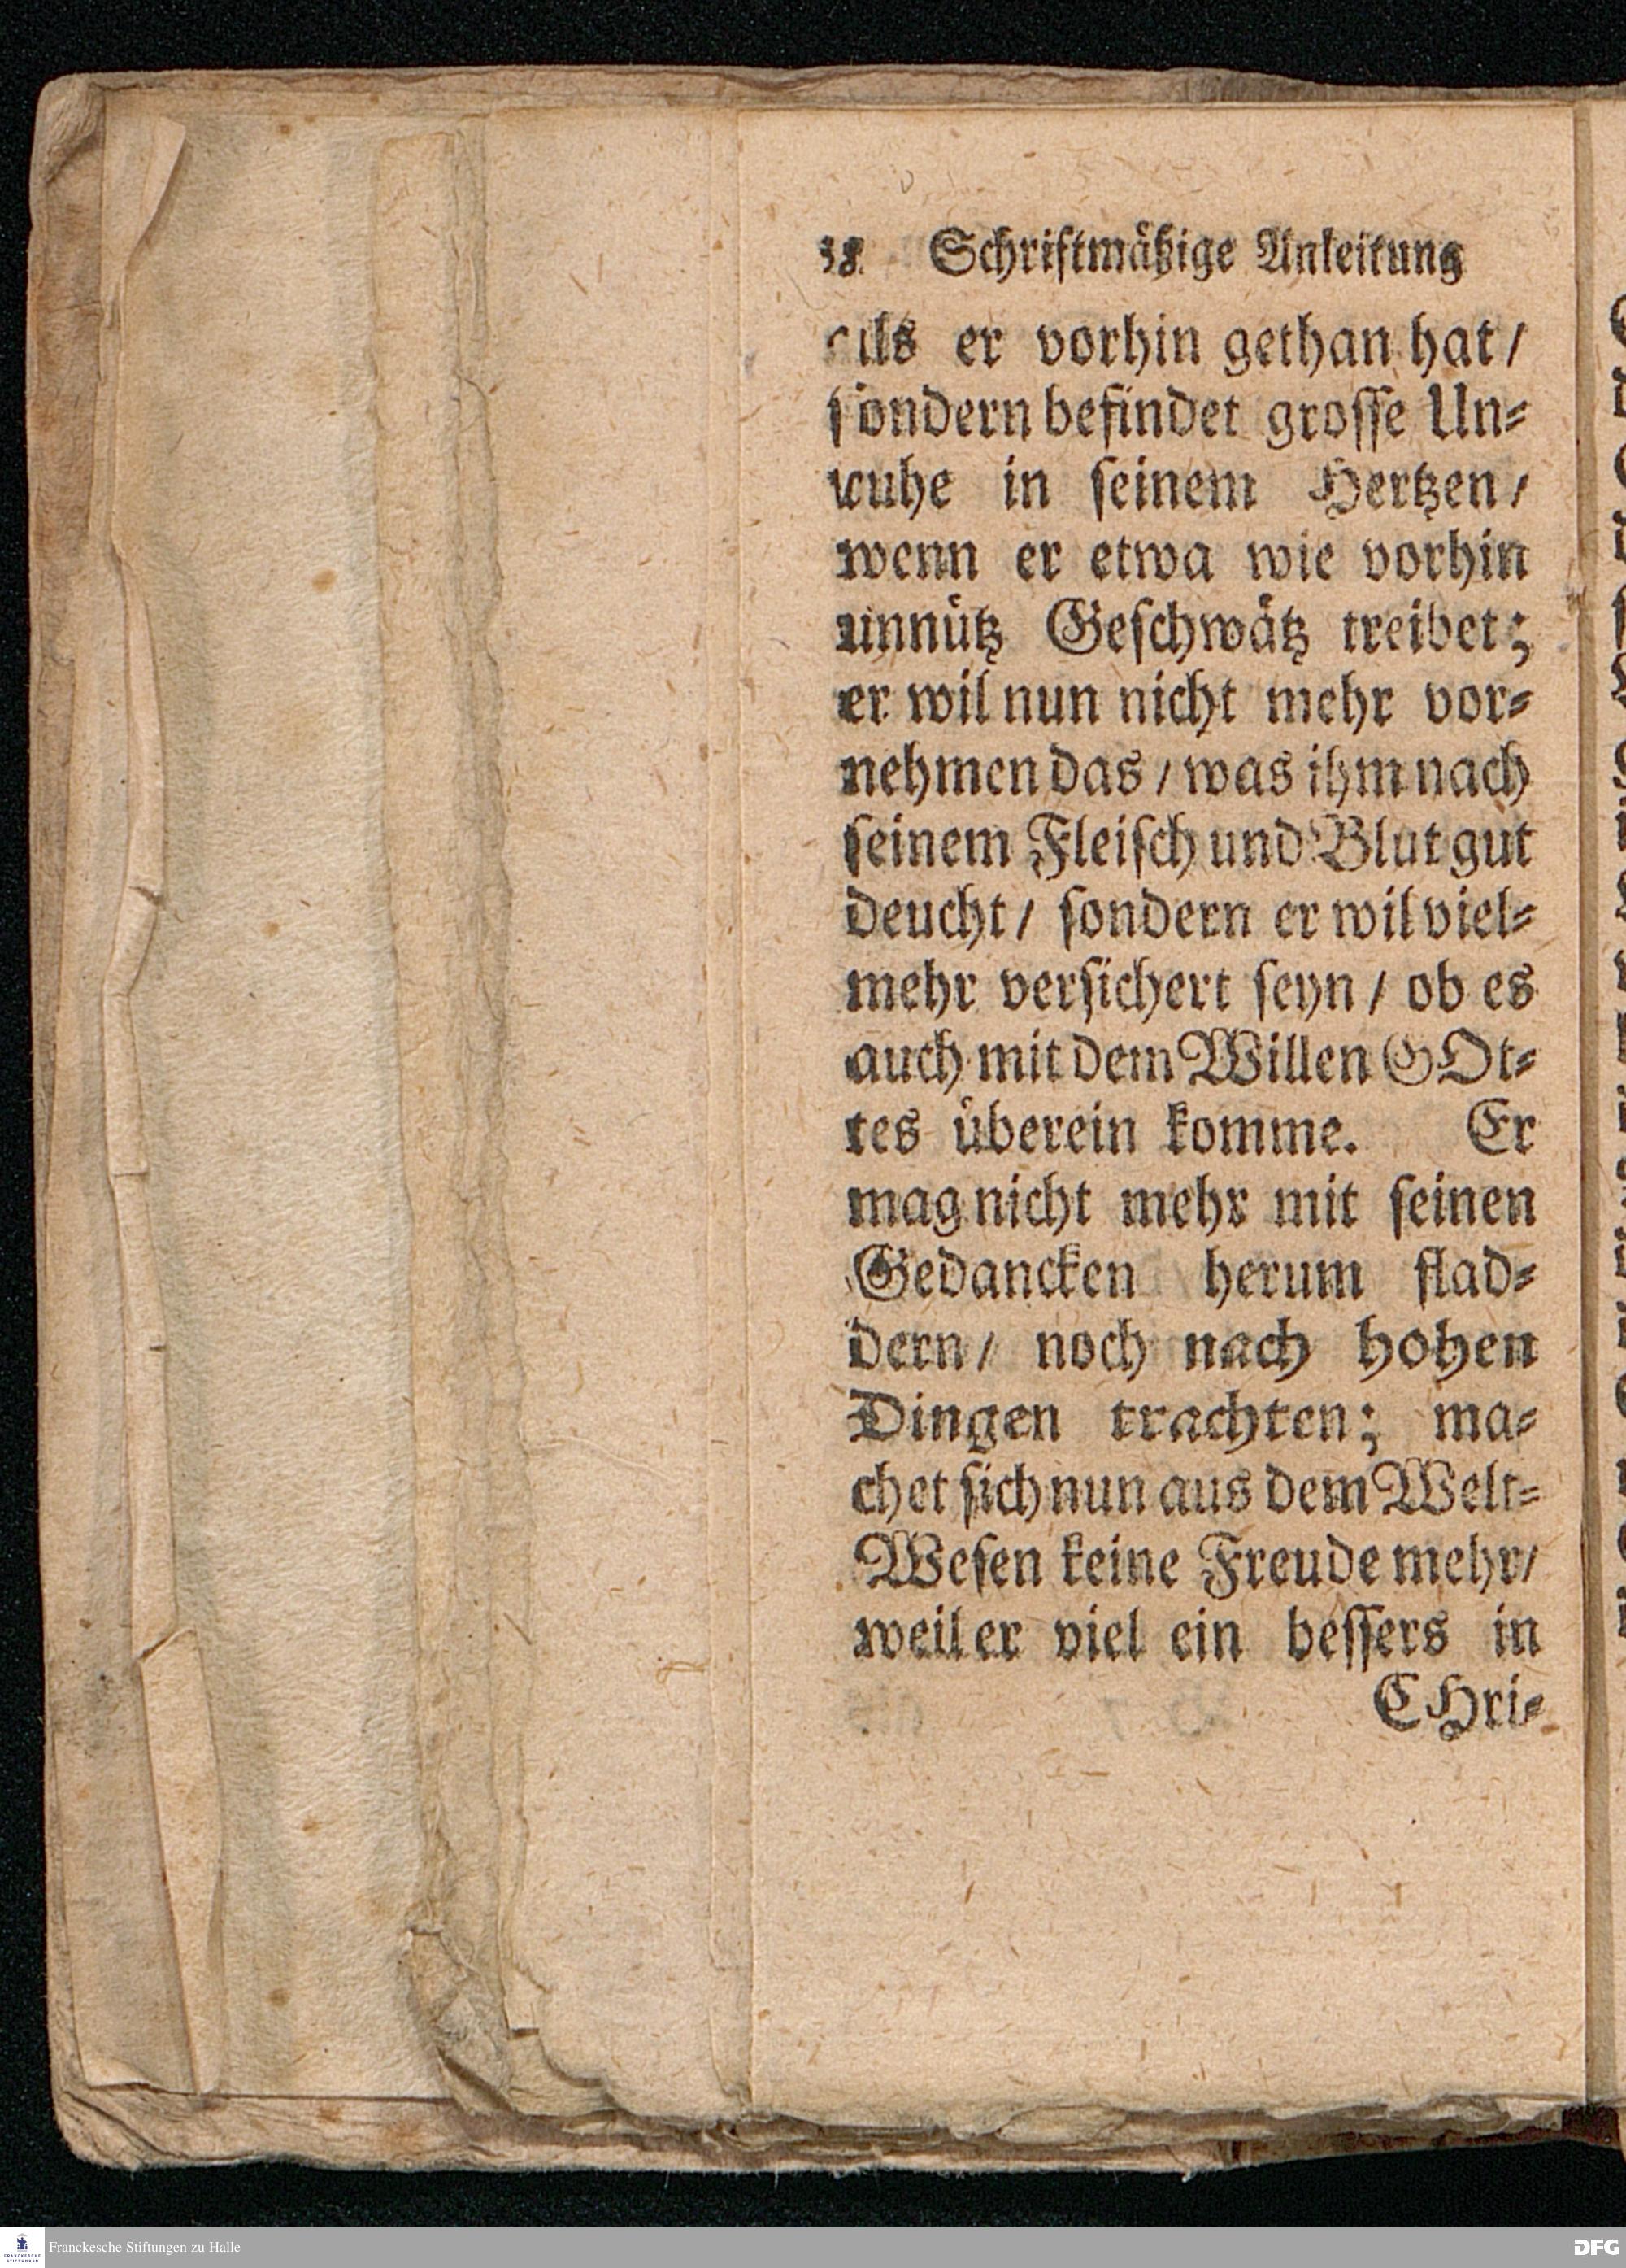 38 Schriftmäßige Anleitung
als er vorhin gethan hat /
sondern befindet grosse Un-
ruhe in seinem Hertzen /
wenn er etwa wie vorhin
unnütz Geschwätz treibet;
er wil nun nicht mehr vor-
nehmen das / was ihm nach
seinem Fleisch und Blut gut
deucht / sondern er wil viel-
mehr versichert seyn / ob es
auch mit dem Willen GOt-
tes überein komme. Er
mag nicht mehr mit seinen
Gedancken herum flad-
dern / noch nach hohen
Dingen trachten; ma-
chet sich nun aus dem Welt-
Wesen keine Freude mehr /
weil er viel ein bessers in
CHri-
FRANCKESCHE STIFTUNGEN
Franckesche Stiftungen zu Halle
DFG